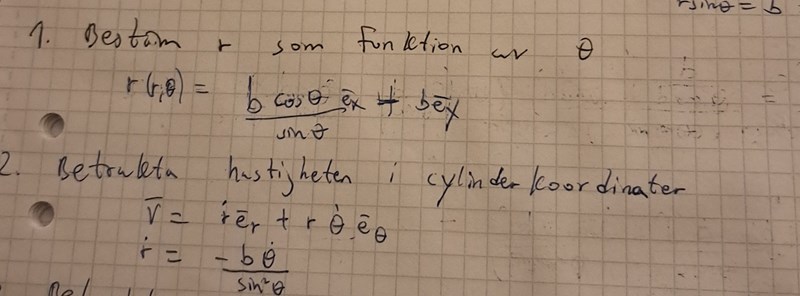 r sinθ = b
1. Bestäm r som funktion av θ
r(r,θ) = b cosθ/sin θ ēx + bēy
2. Betrakta hastigheten i cylinderkoordinater
v̄ = ṙēr + r θ̇ ēθ
ṙ = -bθ̇/sin²θ